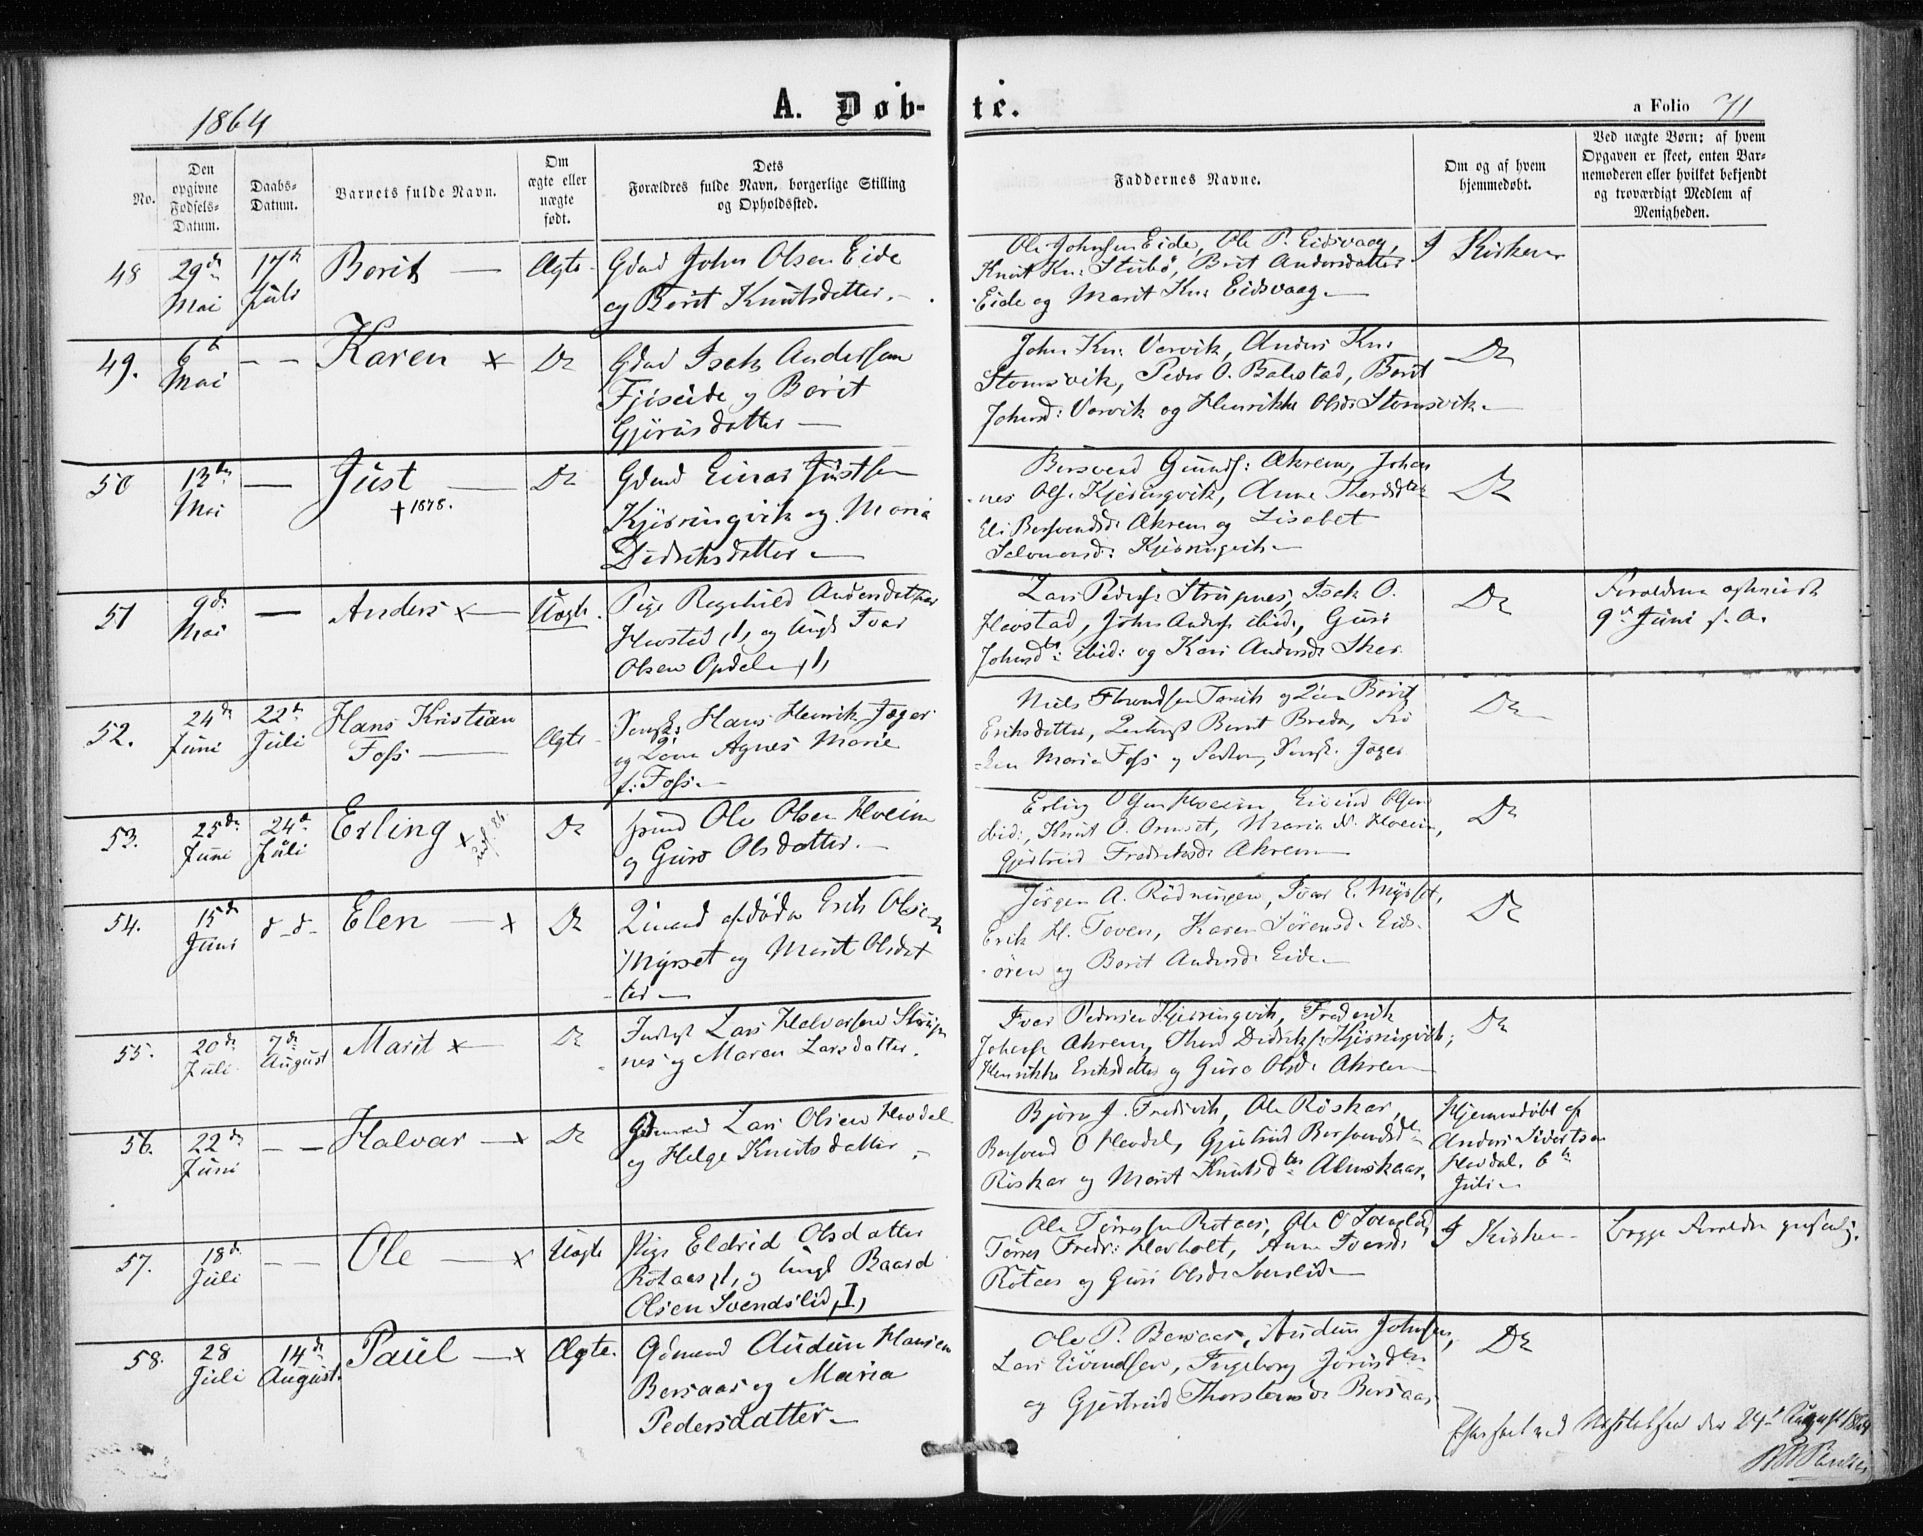 1864
A. Døb-
te.
a Folio 71
No.
Den
opgivne
Fødsels-
Datum.
Daabs-
Datum.
Barnets fulde Navn.
Om
ægte eller
uægte
født.
Dets
Forældres fulde Navn, borgerlige Stilling
og Opholdssted.
Faddernes Navne.
Om og af hvem
hjemmedøbt.
Ved uægte Børn: af hvem
Opgaven er skeet, enten Bar-
nemoderen eller hvilket bekjendt
og troværdigt Medlem af
Menigheden.
48
29de
Mai
17de
Juli
Borit —
Ægte
Gdmd John Olsen Eide
og Borit Knutsdatter. —
Ole Johnsen Eide, Ole P. Eidsvaag,
Knut Kn: Stubø, Brit Andersdatter
Eide og Marit Kn: Eidsvaag —
I Kirken
49.
6te
Mai
— —
Karen x
Do
Gdmd Isak Andersen
Fjøseide og Borit
Gjørisdatter —
John Kn: Vorvik, Anders Kn:
Stomsvik, Peder O. Bolestad, Borit
Johnsd: Vorvik og Henrikke Olsd: Stomsvik —
Do
50
13de
Mai
—
Just —
† 1878.
Do
Gdmd Einar Justsen
Kjøringvik og Maria
Didriksdatter —
Bersvend Gunds: Akrem, Johan
nes Ols: Kjøringvik, Anne Thordsdtr
Eli Bersvendsd: Akrem og Lisabet
Salomonsd: Kjøringvik —
Do
51
9de
Mai
—
Anders x —
Uægte.
Pige Ragnhild Audensdatter
Havstad /1, og Ungk Ivar
Olsen Opdøl /1,
Lars Peders: Strupnes, Isak O.
Havstad, John Anders: ibid:, Guri
Johnsdtr: ibid: og Kari Andersd:
Do
Forældrene
9de Juni s. A.
52.
24de
Juni
22de
Juli
Hans Kristian
Foss —
Ægte
Hans Henrik Jæger
og Agnes Marie
f: Foss —
Niels og Borit
Eriksdatter, Bernt Breda,
Maria Foss og Jæger
Do
53.
25de
Juni
24de
Juli
Erling x
86.
Do
Ole Olsen Hoeim
og Guro Olsdatter. —
Erling Olsen Hoeim, Eivind Olsen
ibid:, Knut O. Ormset, Maria N. Hoeim,
Gjertrud Fredriksd: Akrem —
Do
54.
15de
Juni
d — d —
Elen — x
Do
afdøde Erik Olsen
Myrset og Marit Olsdat
ter —
Jørgen A. Rødningen, Ivar E. Myrset,
Erik H. Toven, Karen Sørensd: Eids-
øren og Borit Andersd: Eide —
Do
55.
20de
Juli
7de
August
Marit x —
Do
Inderst Lars Halvorsen Strup
nes og Maren Larsdatter.
Ivar Pedersen Kjøringvik, Frederik
Johans: Akrem, Thord Didriks: Kjøringvik;
Henrikke Eriksdatter og Guro Olsd: Akrem —
Do
56.
22de
Juni
— —
Halvar — x
Do
Gdmand Lars Olsen Havdal
og Helge Knutsdatter —
Bjørn J. Fredsvik, Ole Røskar,
Bersvend O Havdal, Gjertrud Bersvendsdtr
Røskar og Marit Knutsdtr Alnskaar.
Hjemmedøbt af
Anders Sivertsen
Havdal. 6te
Juli —
57.
18de
Juli
— —
Ole — x
Uægte
Pige Eldrid Olsdatter
Rotaas /1, og Ungk Baard
Olsen Svendslid, I,
Ole Tørresen Rotaas, Ole O Svenslid,
Tørres Fredr: Havholt, Anne Ivarsd:
Rotaas og Guri Olsd: Svenslid —
I Kirken —
begge Forældre
58.
28
Juli
14de
August.
Paul — x
Ægte.
Gdmand Audun Hansen
Bersaas og Maria
Pedersdatter —
Ole P. Bersaas, Audun Johnsen,
Lars Eivindsen, Ingeborg Jørisdtr
og Gjertrud Thorstensd: Bersaas
Do
Efterseet ved Visitatsen den 24de August 1864